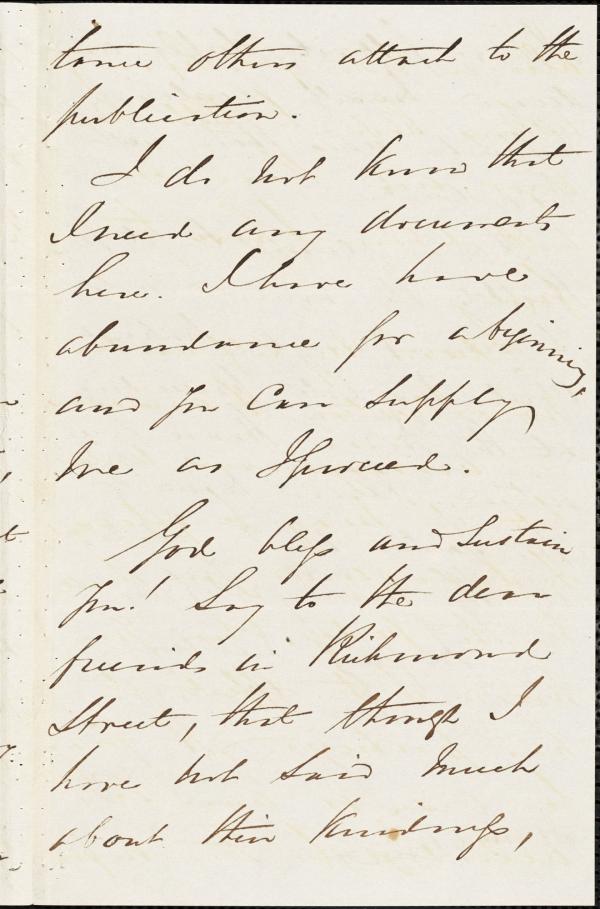 tance others attach to the
publication.
I do not know that
I need any documents
here. I have have
abundance for a beginning,
and you can supply
me as I proceed.
God bless and sustain
you! Say to the dear
friends in Richmond
Street, that though I
have not said much
about their kindness,